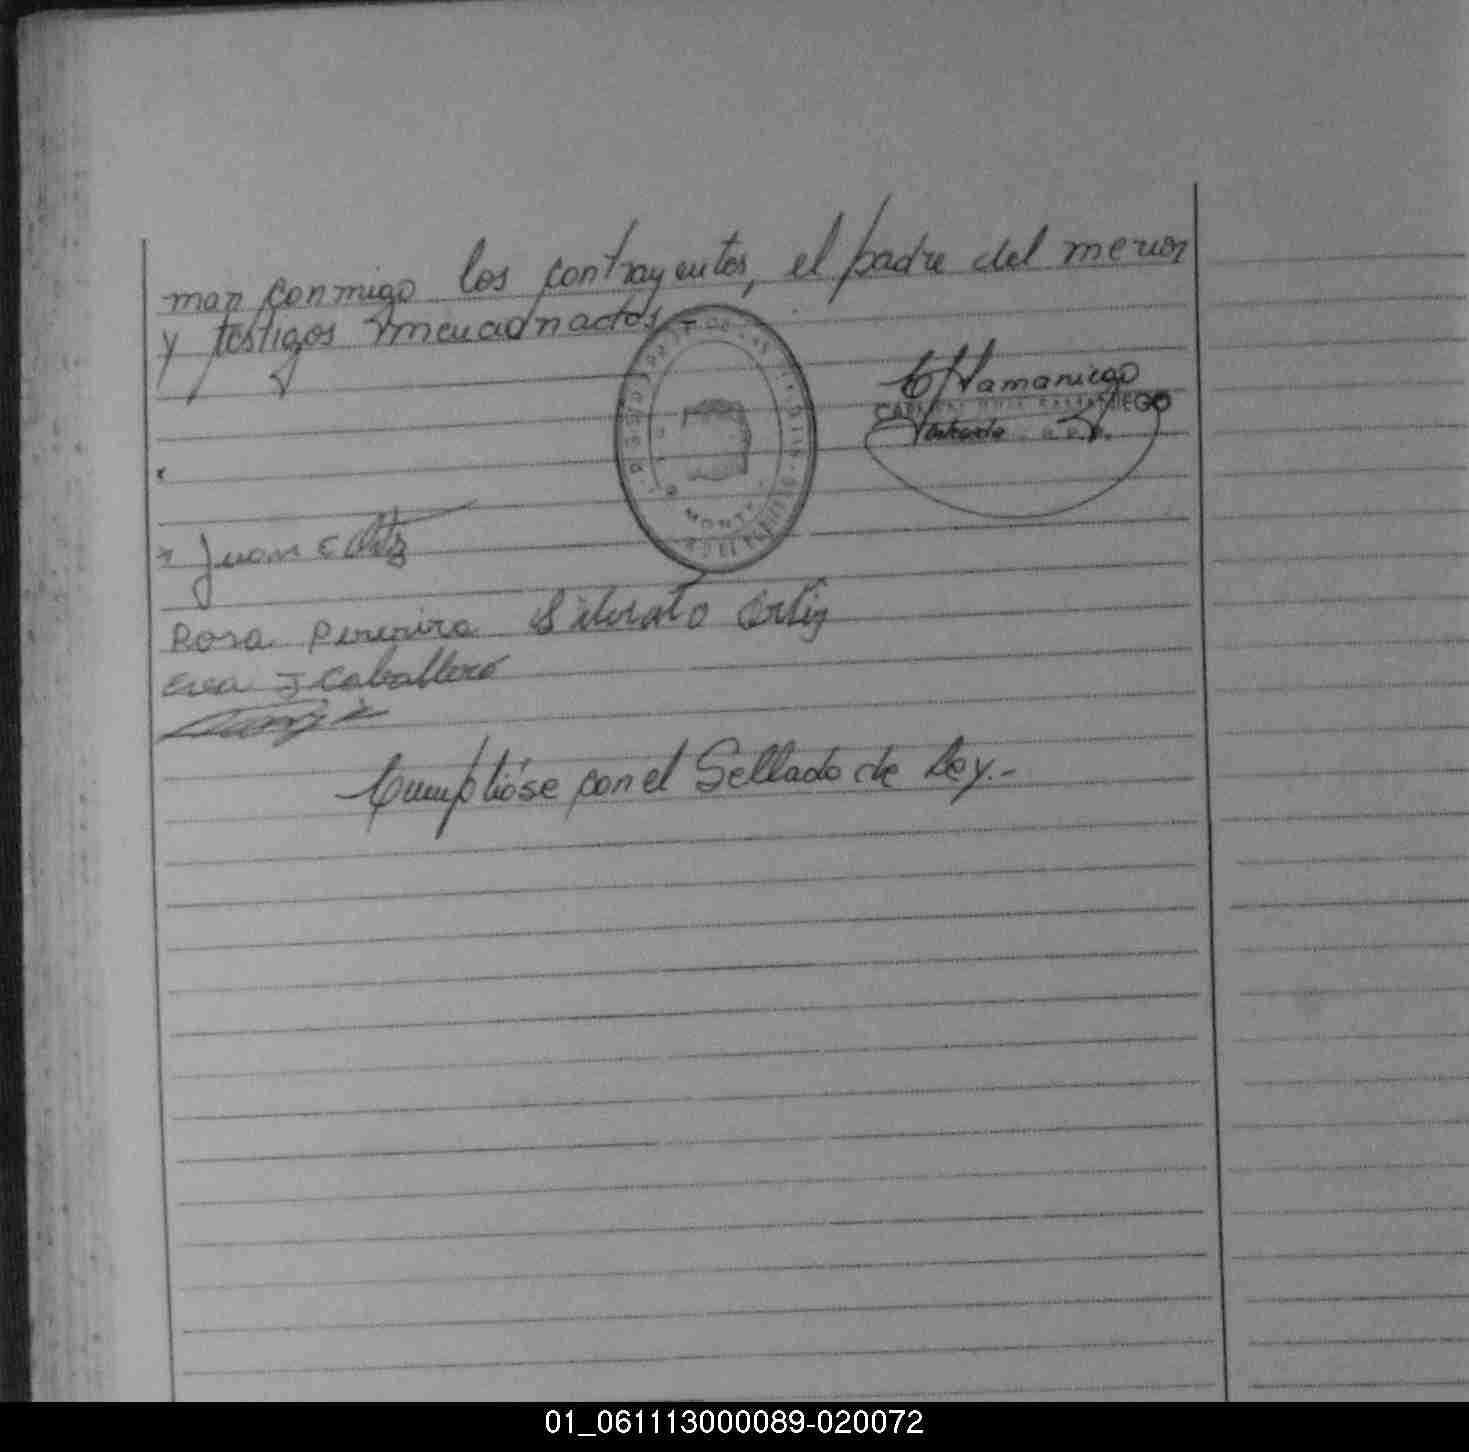 man conmigo los contrayentes, el padre del menor
y testigos mencionados.-
Samaniego
Juan C Ortiz
Rosa Pereira Liberato Ortiz
Eva J Caballero
Cumplióse con el Sellado de Ley.-
01_061113000089-020072